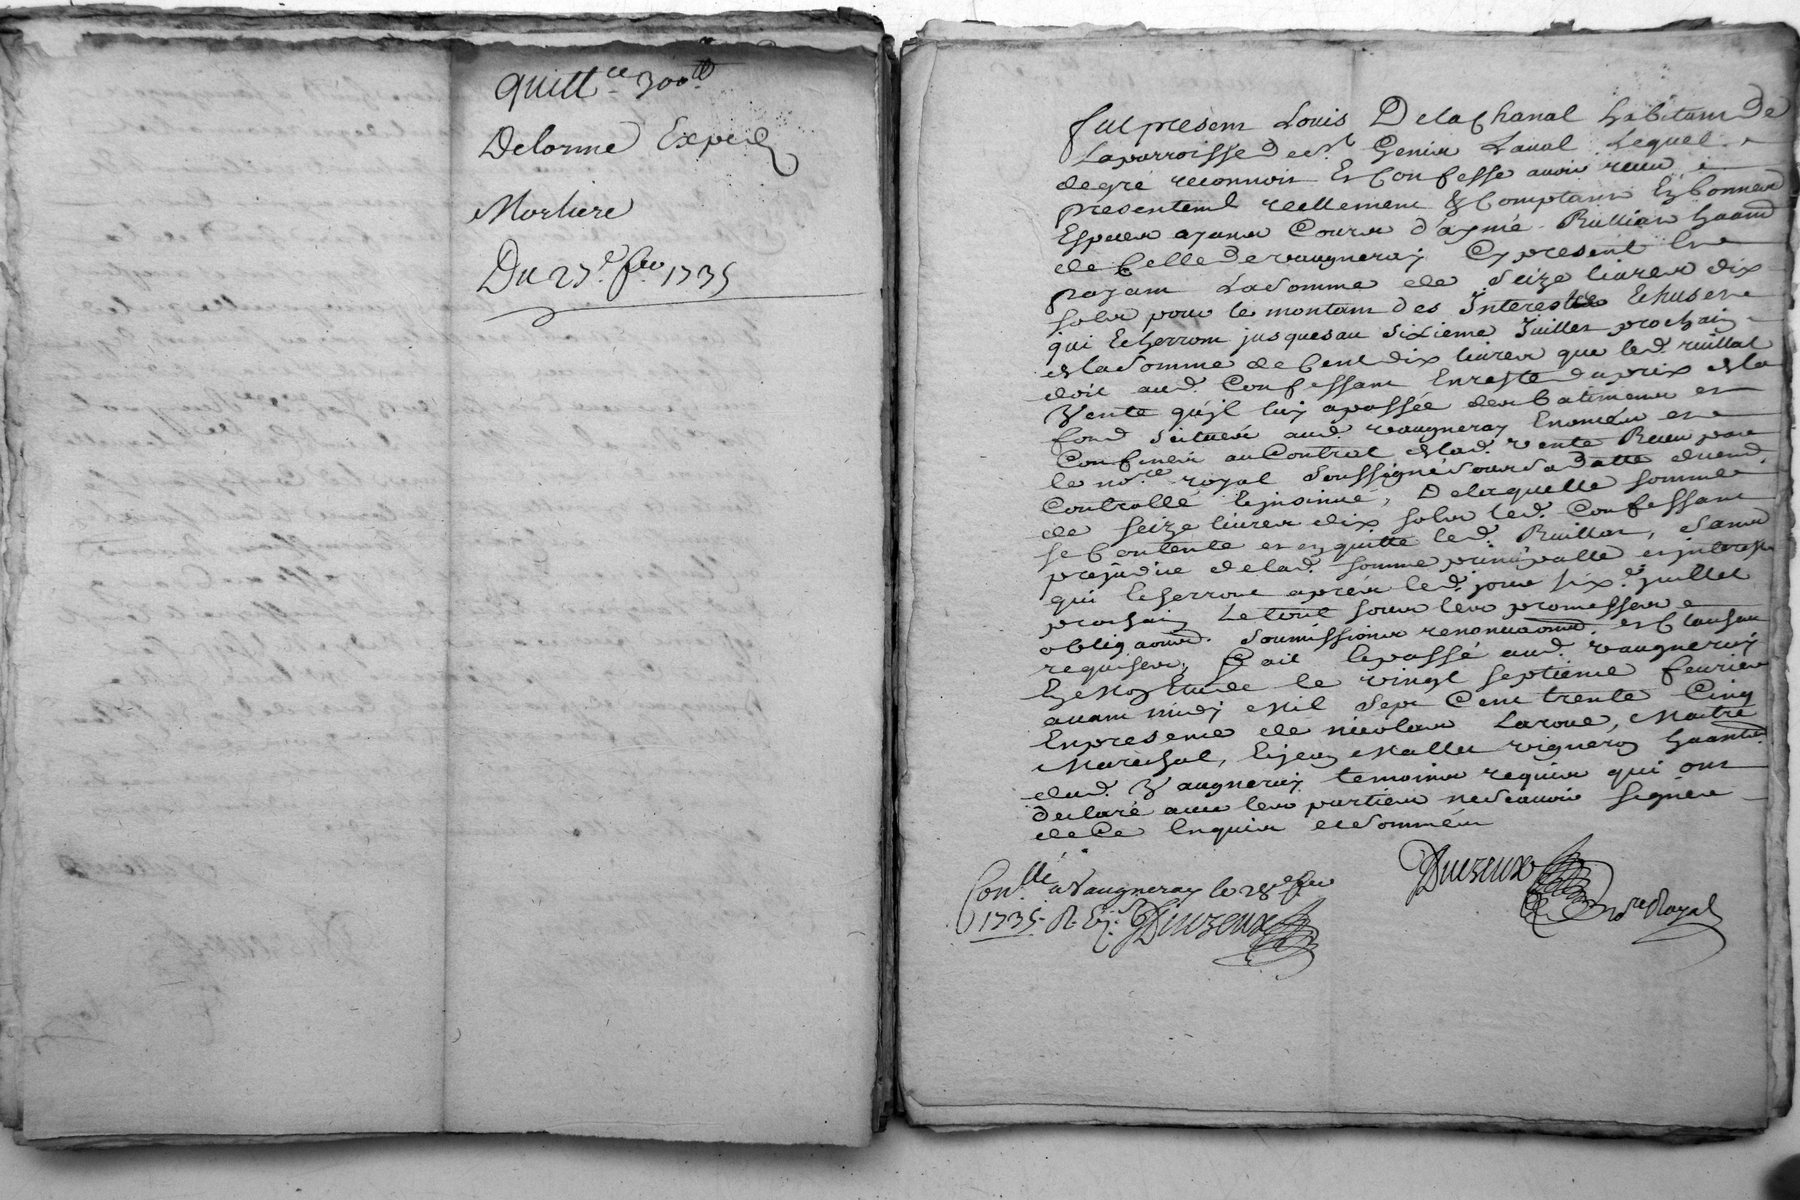 Quitt.ce 300tt
Delorme Exped
Morliere
Du 27.e fev. 1735
fut present Louis Delachanal habitant de
Laparroisse de st Genis Laval Lequel
degré reconnoit Et Confesse avoir receu
presentem.t reellement & Comptant En bonnes
Especes ayans Cours d'aymé Rullias haand
de Celle de vaugneray Cy present Et
payant La Somme de Seize livres dix
sols pour le montant des Interests Echus et
qui Echerront jusquesau Sixieme Juillet prochain
& la Somme de Cent dix livres que led. ruillat
doit aud. Confessant En reste du prix de la
Vente qu'jl luy a passée des batimens et
fond Scitués aud. vaugneray Enoncés et
Confinés au Contrat de lad. vente Receu par
le no.re royal Soussigné Sous Sa datte duement
Controllé Insinué, De laquelle Somme
de Seize livres dix sols led. Confessant
se Contente et en quitte led. Ruillat, Sans
prejudice de lad. Somme principalle et jnterests
qui Echerront après led. jour six.e juillet
prochain Le tout sous leur promesses
obligaons. Soumissions renonciaons. et Clauses
requises, fait Et passé aud. vaugneray
En Mon Etude le vingt septieme fevrier
avant midy Mil Sept Cent trente Cinq
En presence de nicolas Laroue, Maitre
Marechal, Et jean Mallet vigneron haants
dud. Vaugneray temoins requis qui ont
declaré avec leur parties ne Scavoir Signer
de Ce Enquis et Sommés
Duvzeux
no.re Royal
Con.llé a Vaugneray le 28.e fev
1735. R. Duvzeux